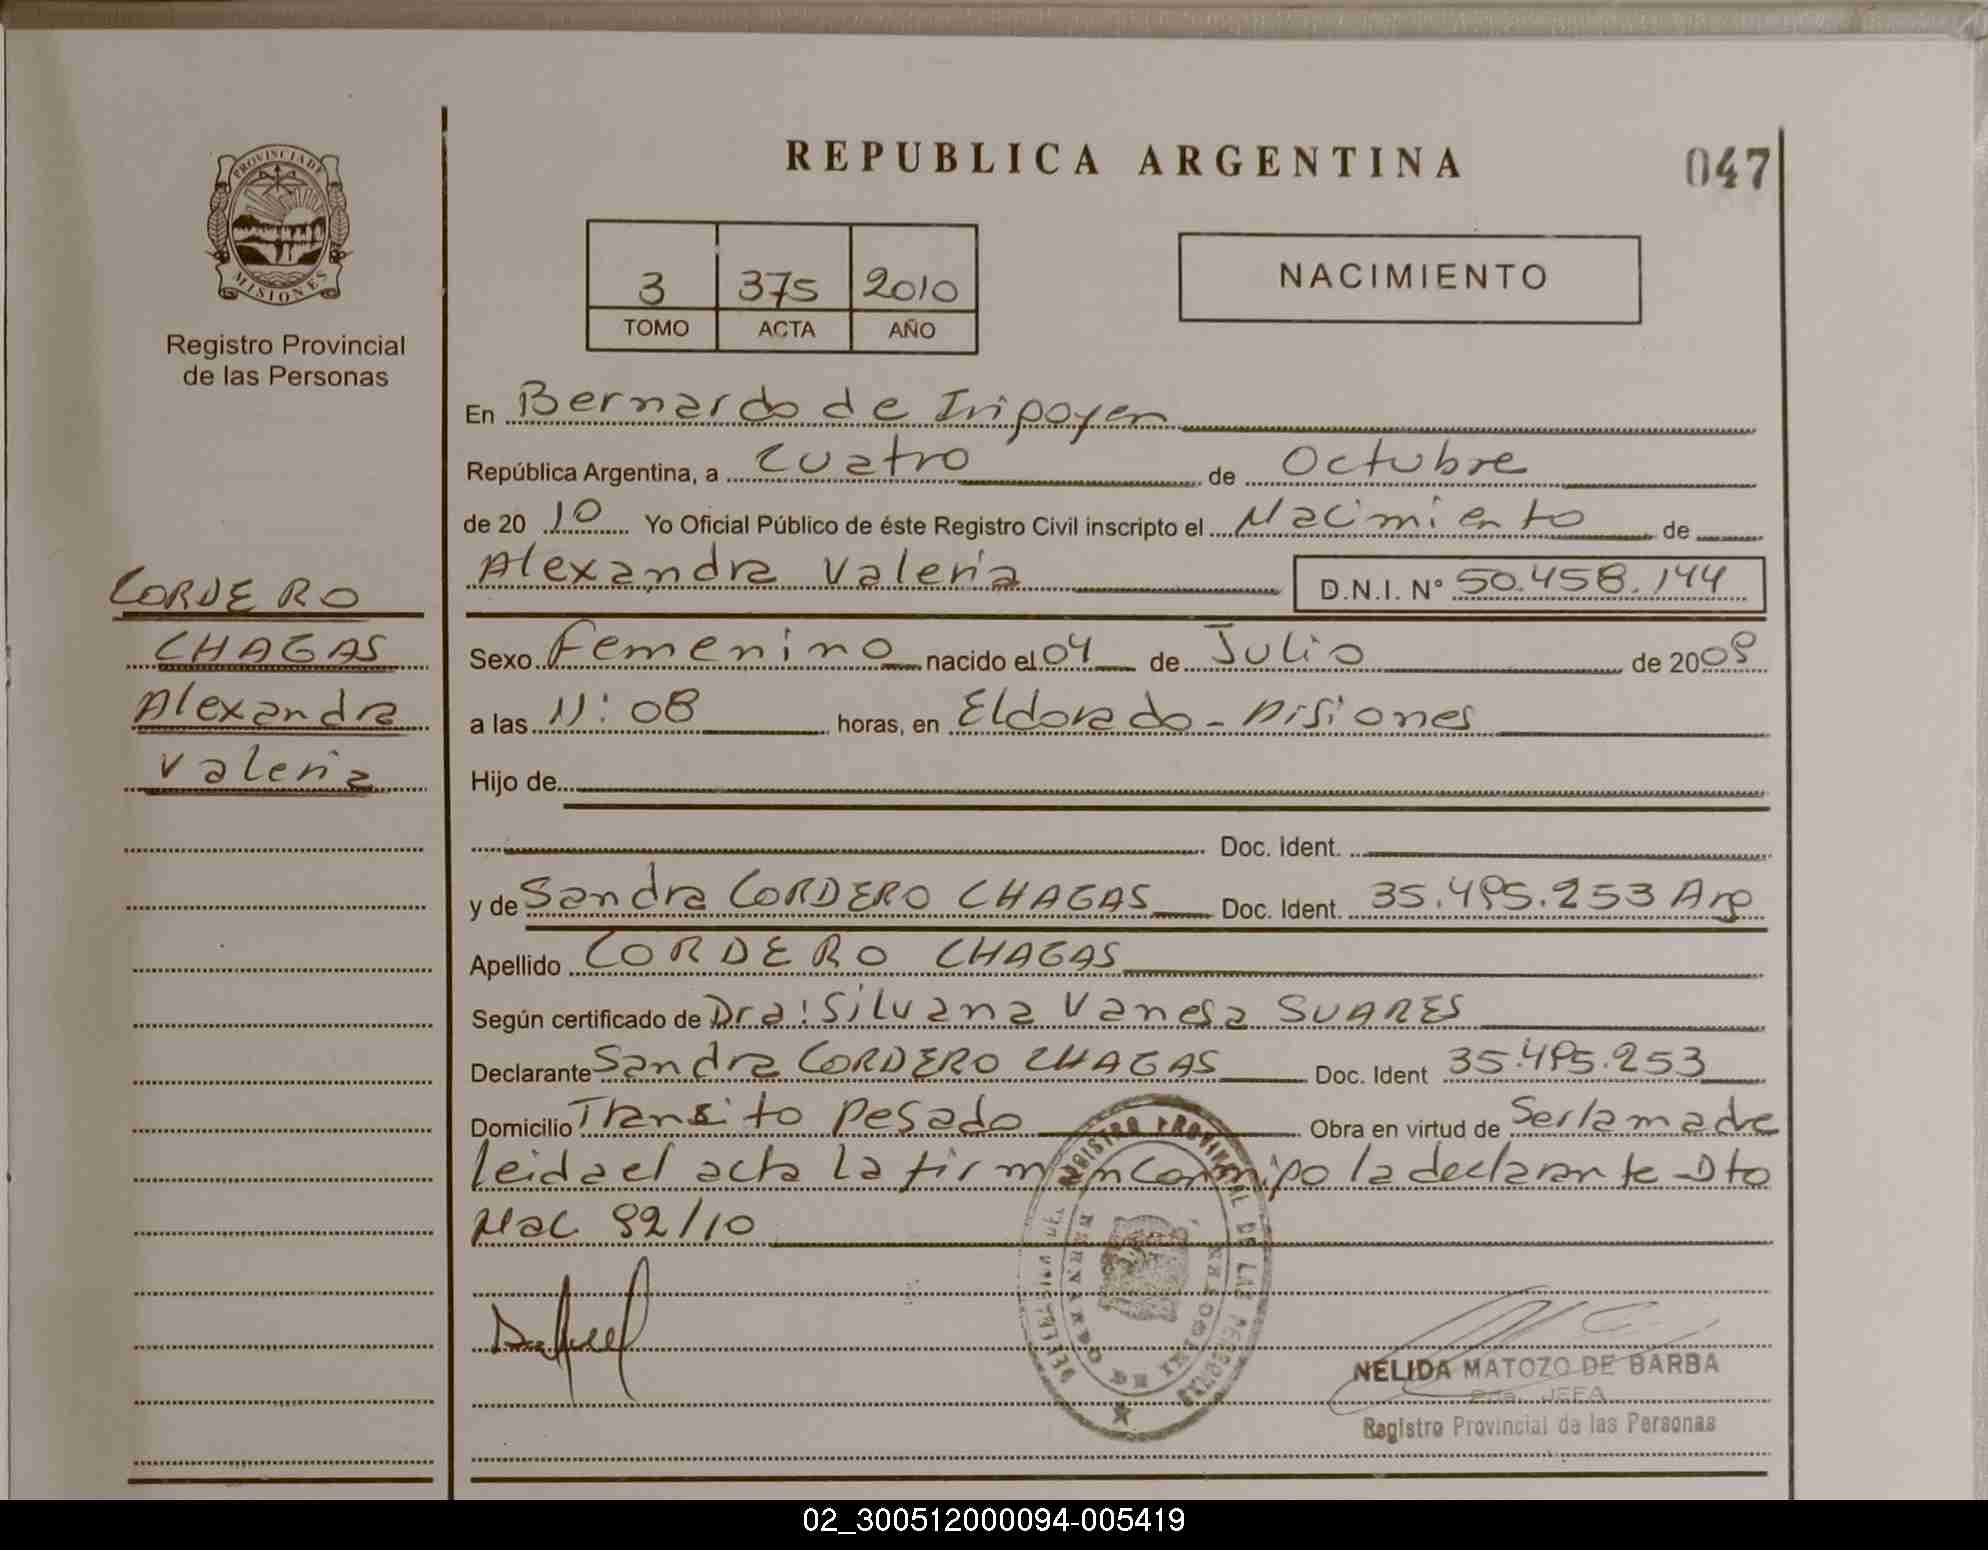 PROVINCIA DE
MISIONES
Registro Provincial
de las Personas
CORDERO
CHAGAS
Alexandra
Valeria
REPUBLICA ARGENTINA
047
3 375 2010
TOMO ACTA AÑO
NACIMIENTO
En Bernardo de Irigoyen
República Argentina, a Cuatro de Octubre
de 20 10 Yo Oficial Público de éste Registro Civil inscripto el Nacimiento de
Alexandra Valeria D.N.I. N° 50.458.144
Sexo Femenino nacido el 04 de Julio de 2009
a las 11:08 horas, en Eldorado - Misiones
Hijo de
Doc. Ident.
y de Sandra CORDERO CHAGAS Doc. Ident. 35.495.253 Arg
Apellido CORDERO CHAGAS
Según certificado de Dra: Silvana Vanesa SUARES
Declarante Sandra CORDERO CHAGAS Doc. Ident 35.495.253
Domicilio Transito Pesado Obra en virtud de Ser la madre
leida el acta la firman conmigo la declarante - Dto
Nac 92/10
REGISTRO PROVINCIAL DE LAS PERSONAS
BERNARDO DE IRIGOYEN
NELIDA MATOZO DE BARBA
JEFA
Registro Provincial de las Personas
02_300512000094-005419